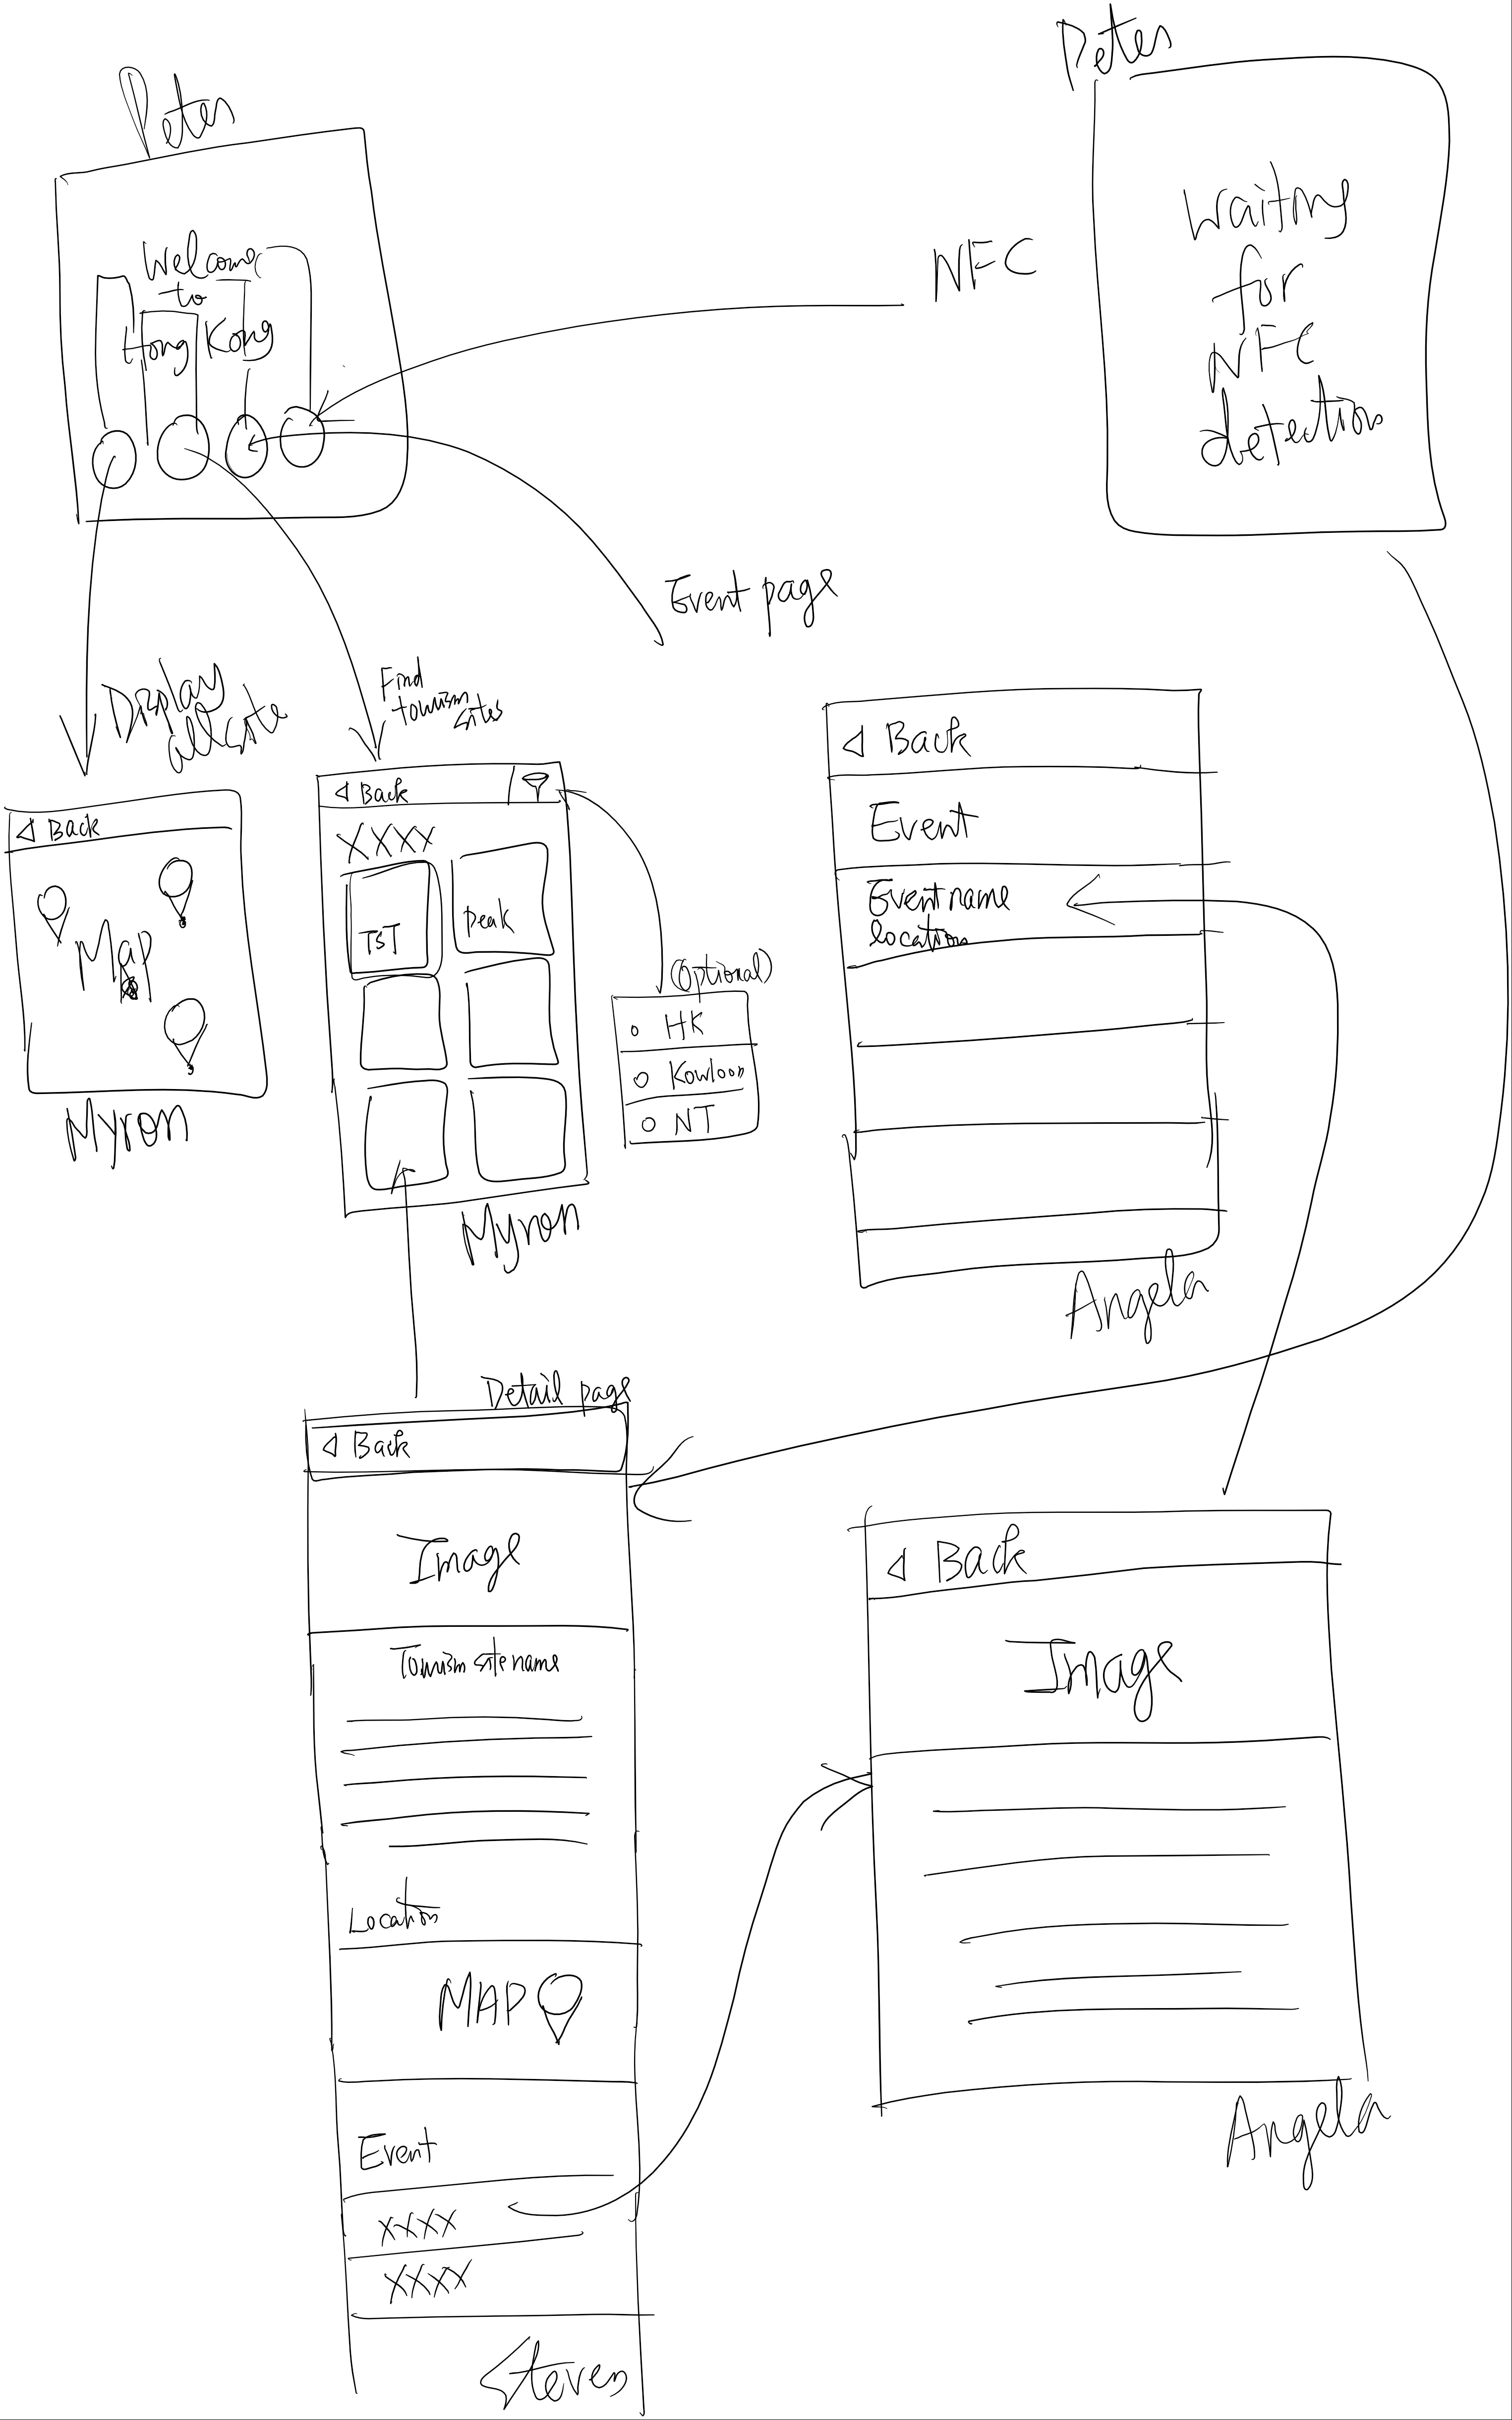 Peter
Welcome
to
Hong Kong
NFC
Peter
Waiting
for
NFC
detection
Event page
Display
all site
Find
tourism
sites
Back
Map
Myron
Back
XXXX
TST
peak
Myron
(Optional)
HK
Kowloon
NT
Back
Event
Event name
location
Angela
Detail page
Back
Image
Tourism site name
Location
MAP
Event
XXXX
XXXX
Steven
Back
Image
Angela